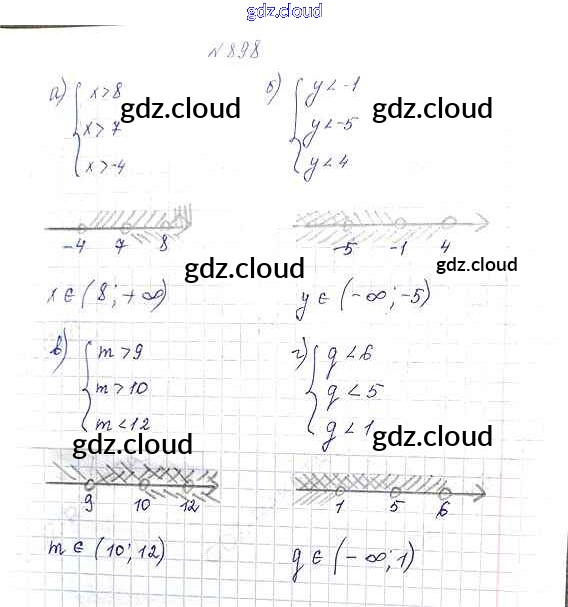 gdz.cloud
№898
а) { x>8
x>7
x>-4
б) { y<-1
y<-5
y<4
gdz.cloud gdz.cloud
-4 7 8
-5 -1 4
gdz.cloud gdz.cloud
x∈(8;+∞)
y∈(-∞;-5)
в) { m>9
m>10
m<12
г) { g<6
g<5
g<1
gdz.cloud gdz.cloud
9 10 12
1 5 6
m∈(10;12)
g∈(-∞;1)